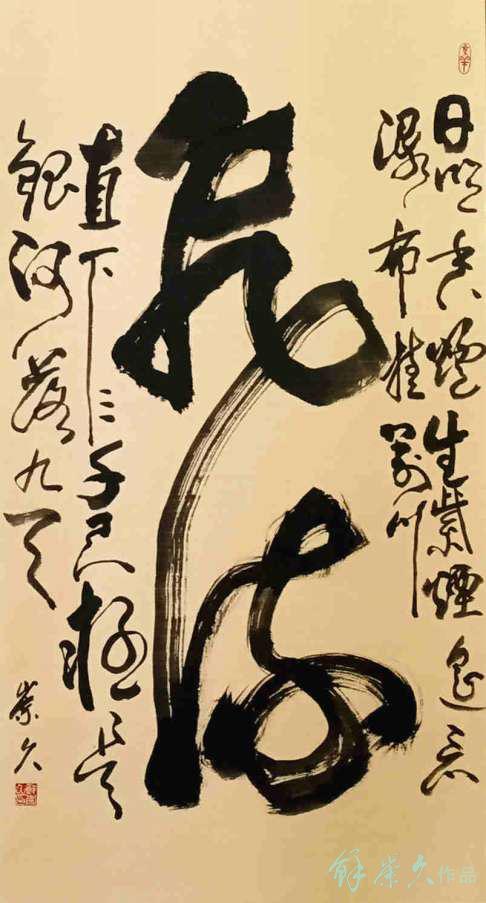 日照香爐生紫煙遙看
瀑布挂前川
飛流
直下三千尺疑是
銀河落九天
崇久
解崇久作品